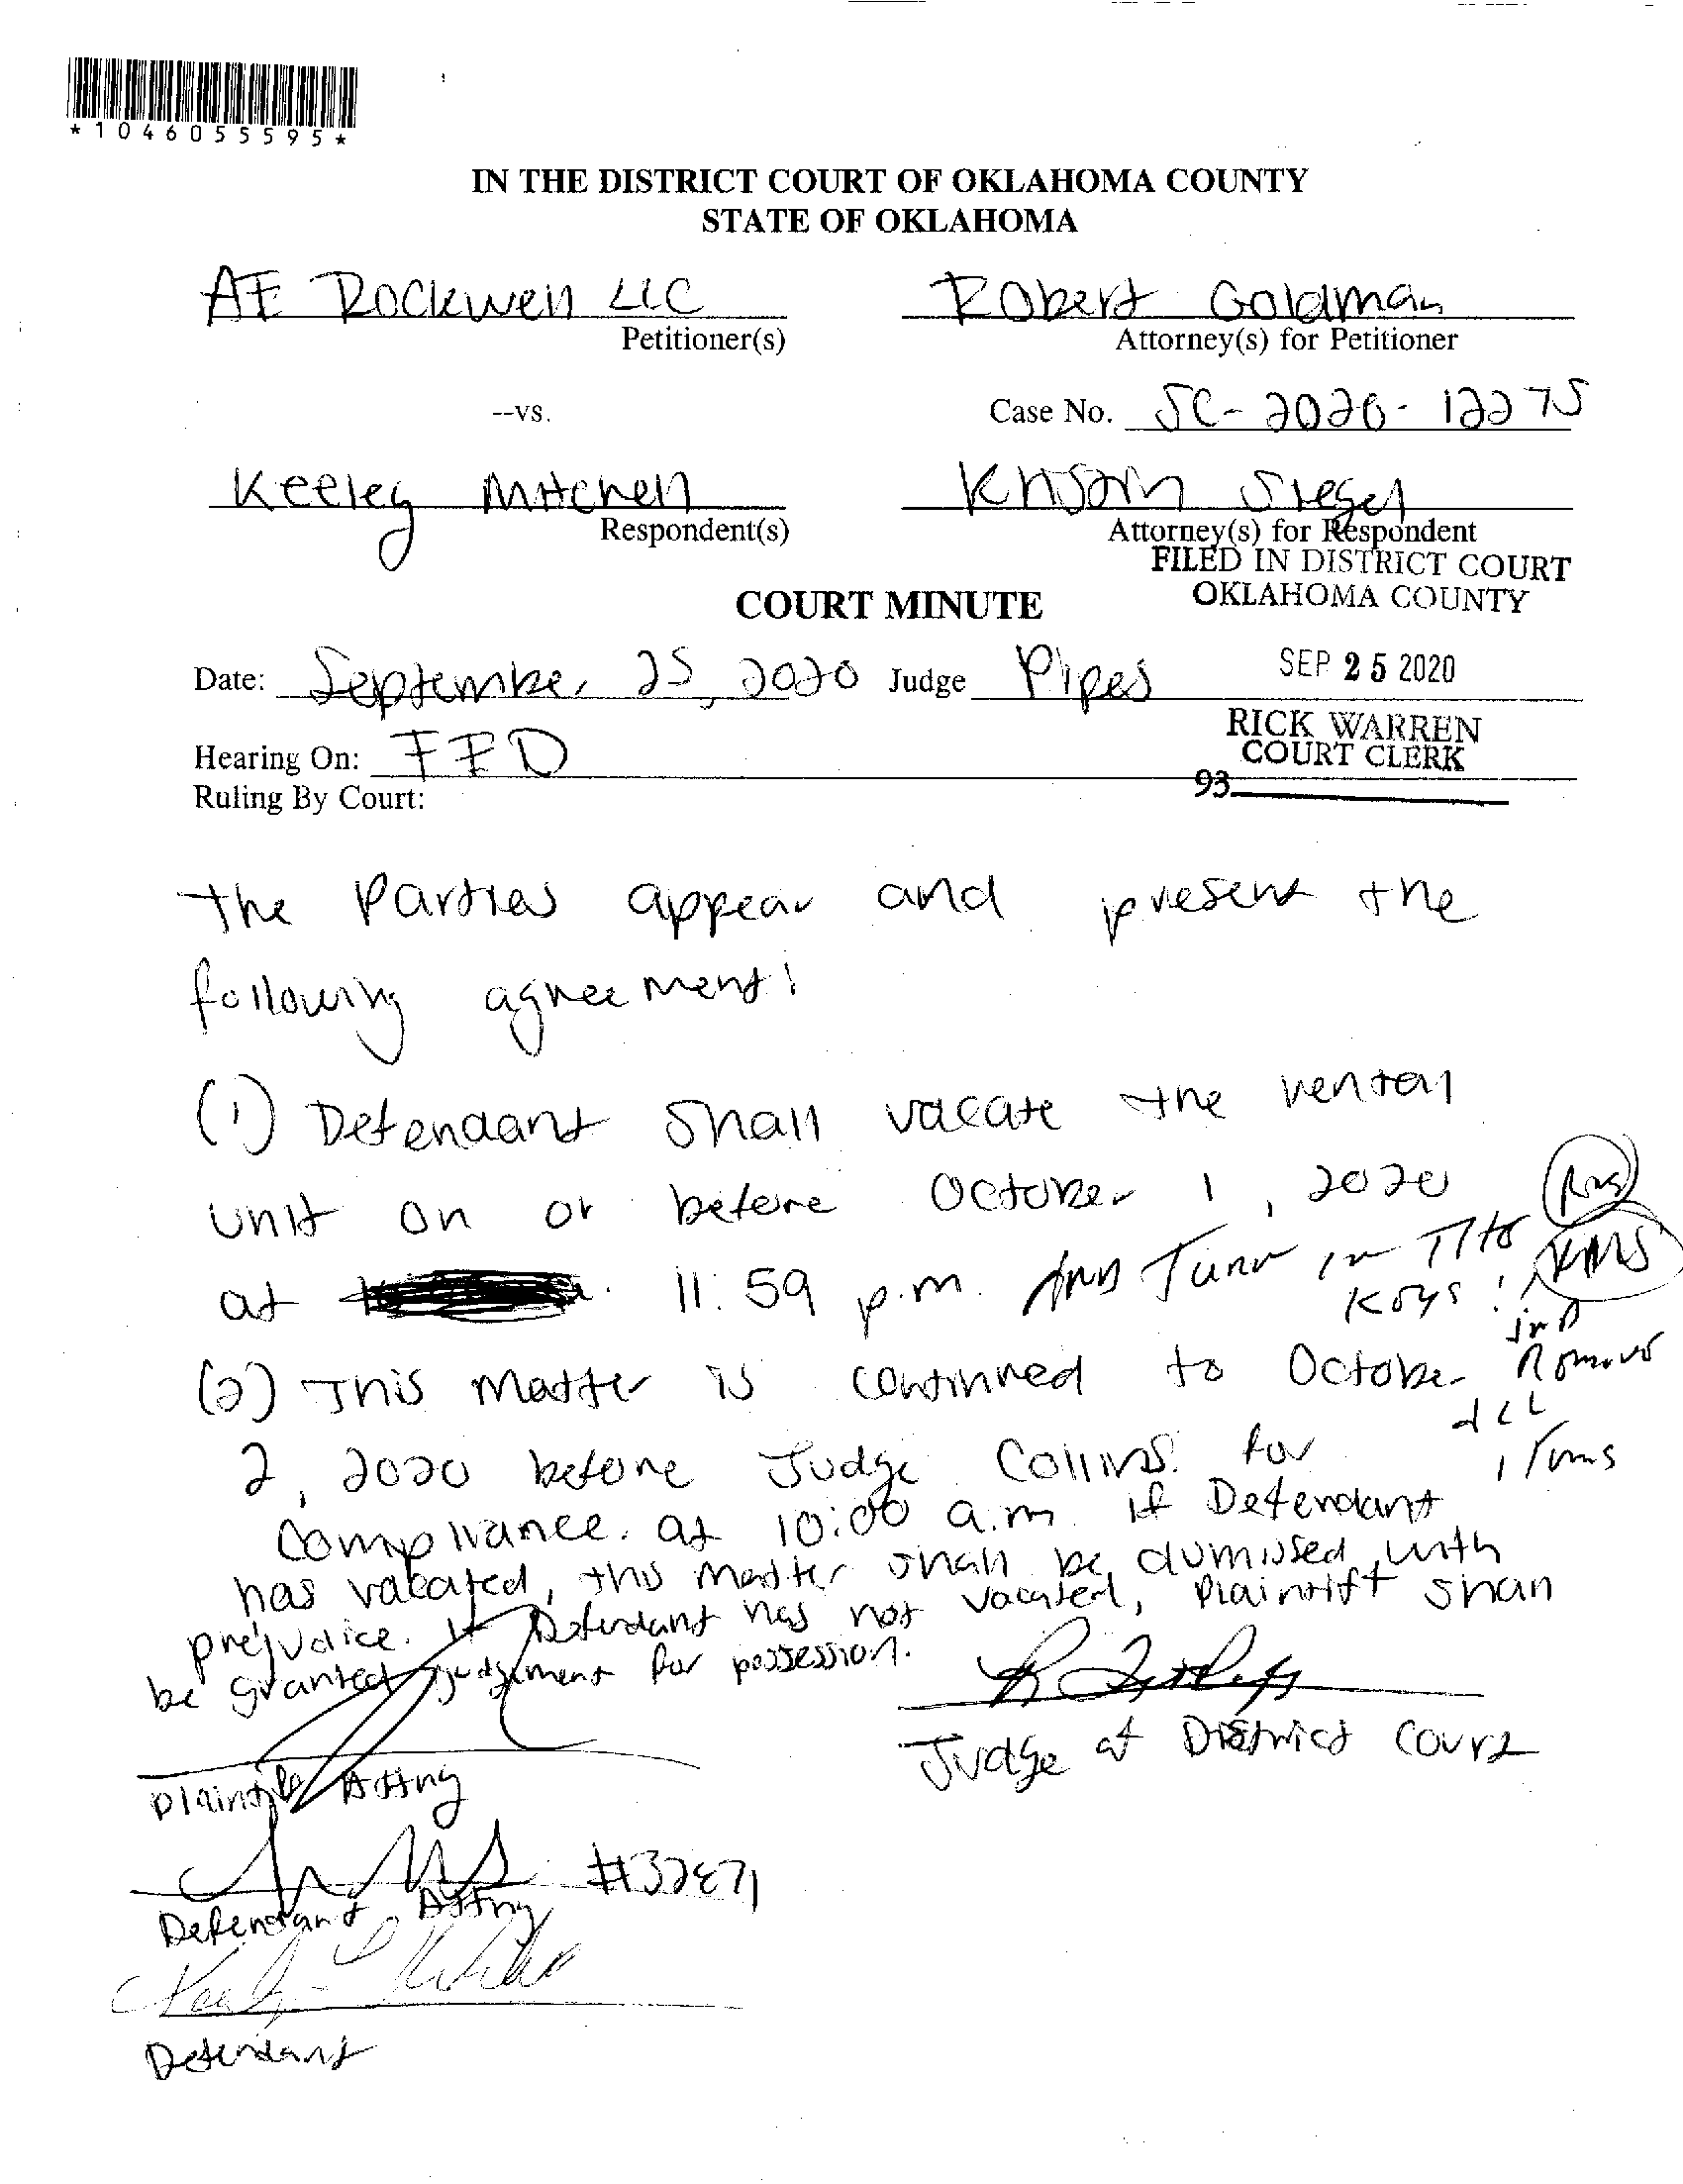 *1046055595*
IN THE DISTRICT COURT OF OKLAHOMA COUNTY
STATE OF OKLAHOMA
AE Rockwell LLC
Petitioner(s)
Robert Goldman
Attorney(s) for Petitioner
--vs.
Case No. SC-2020-12275
Keeley Mitchell
Respondent(s)
Kristin Siegel
Attorney(s) for Respondent
FILED IN DISTRICT COURT
OKLAHOMA COUNTY
COURT MINUTE
Date: September 25, 2020 Judge Pipes
SEP 25 2020
RICK WARREN
COURT CLERK
Hearing On: FED
93
Ruling By Court:
The Parties appear and present the
following agreement:
(1) Defendant shall vacate the rental
unit on or before October 1, 2020
at 11:59 p.m. And Turn in The
Keys! KMS
and
Remove
all
items
(2) This matter is continued to October
2, 2020 before Judge Collins for
compliance. at 10:00 a.m. if Defendant
has vacated, this matter shall be dismissed with
prejudice. If Defendant has not vacated, Plaintiff shall
be granted judgement for possession.
Judge of District Court
Plaintiff Attny
#32871
Defendant Attny
Defendant